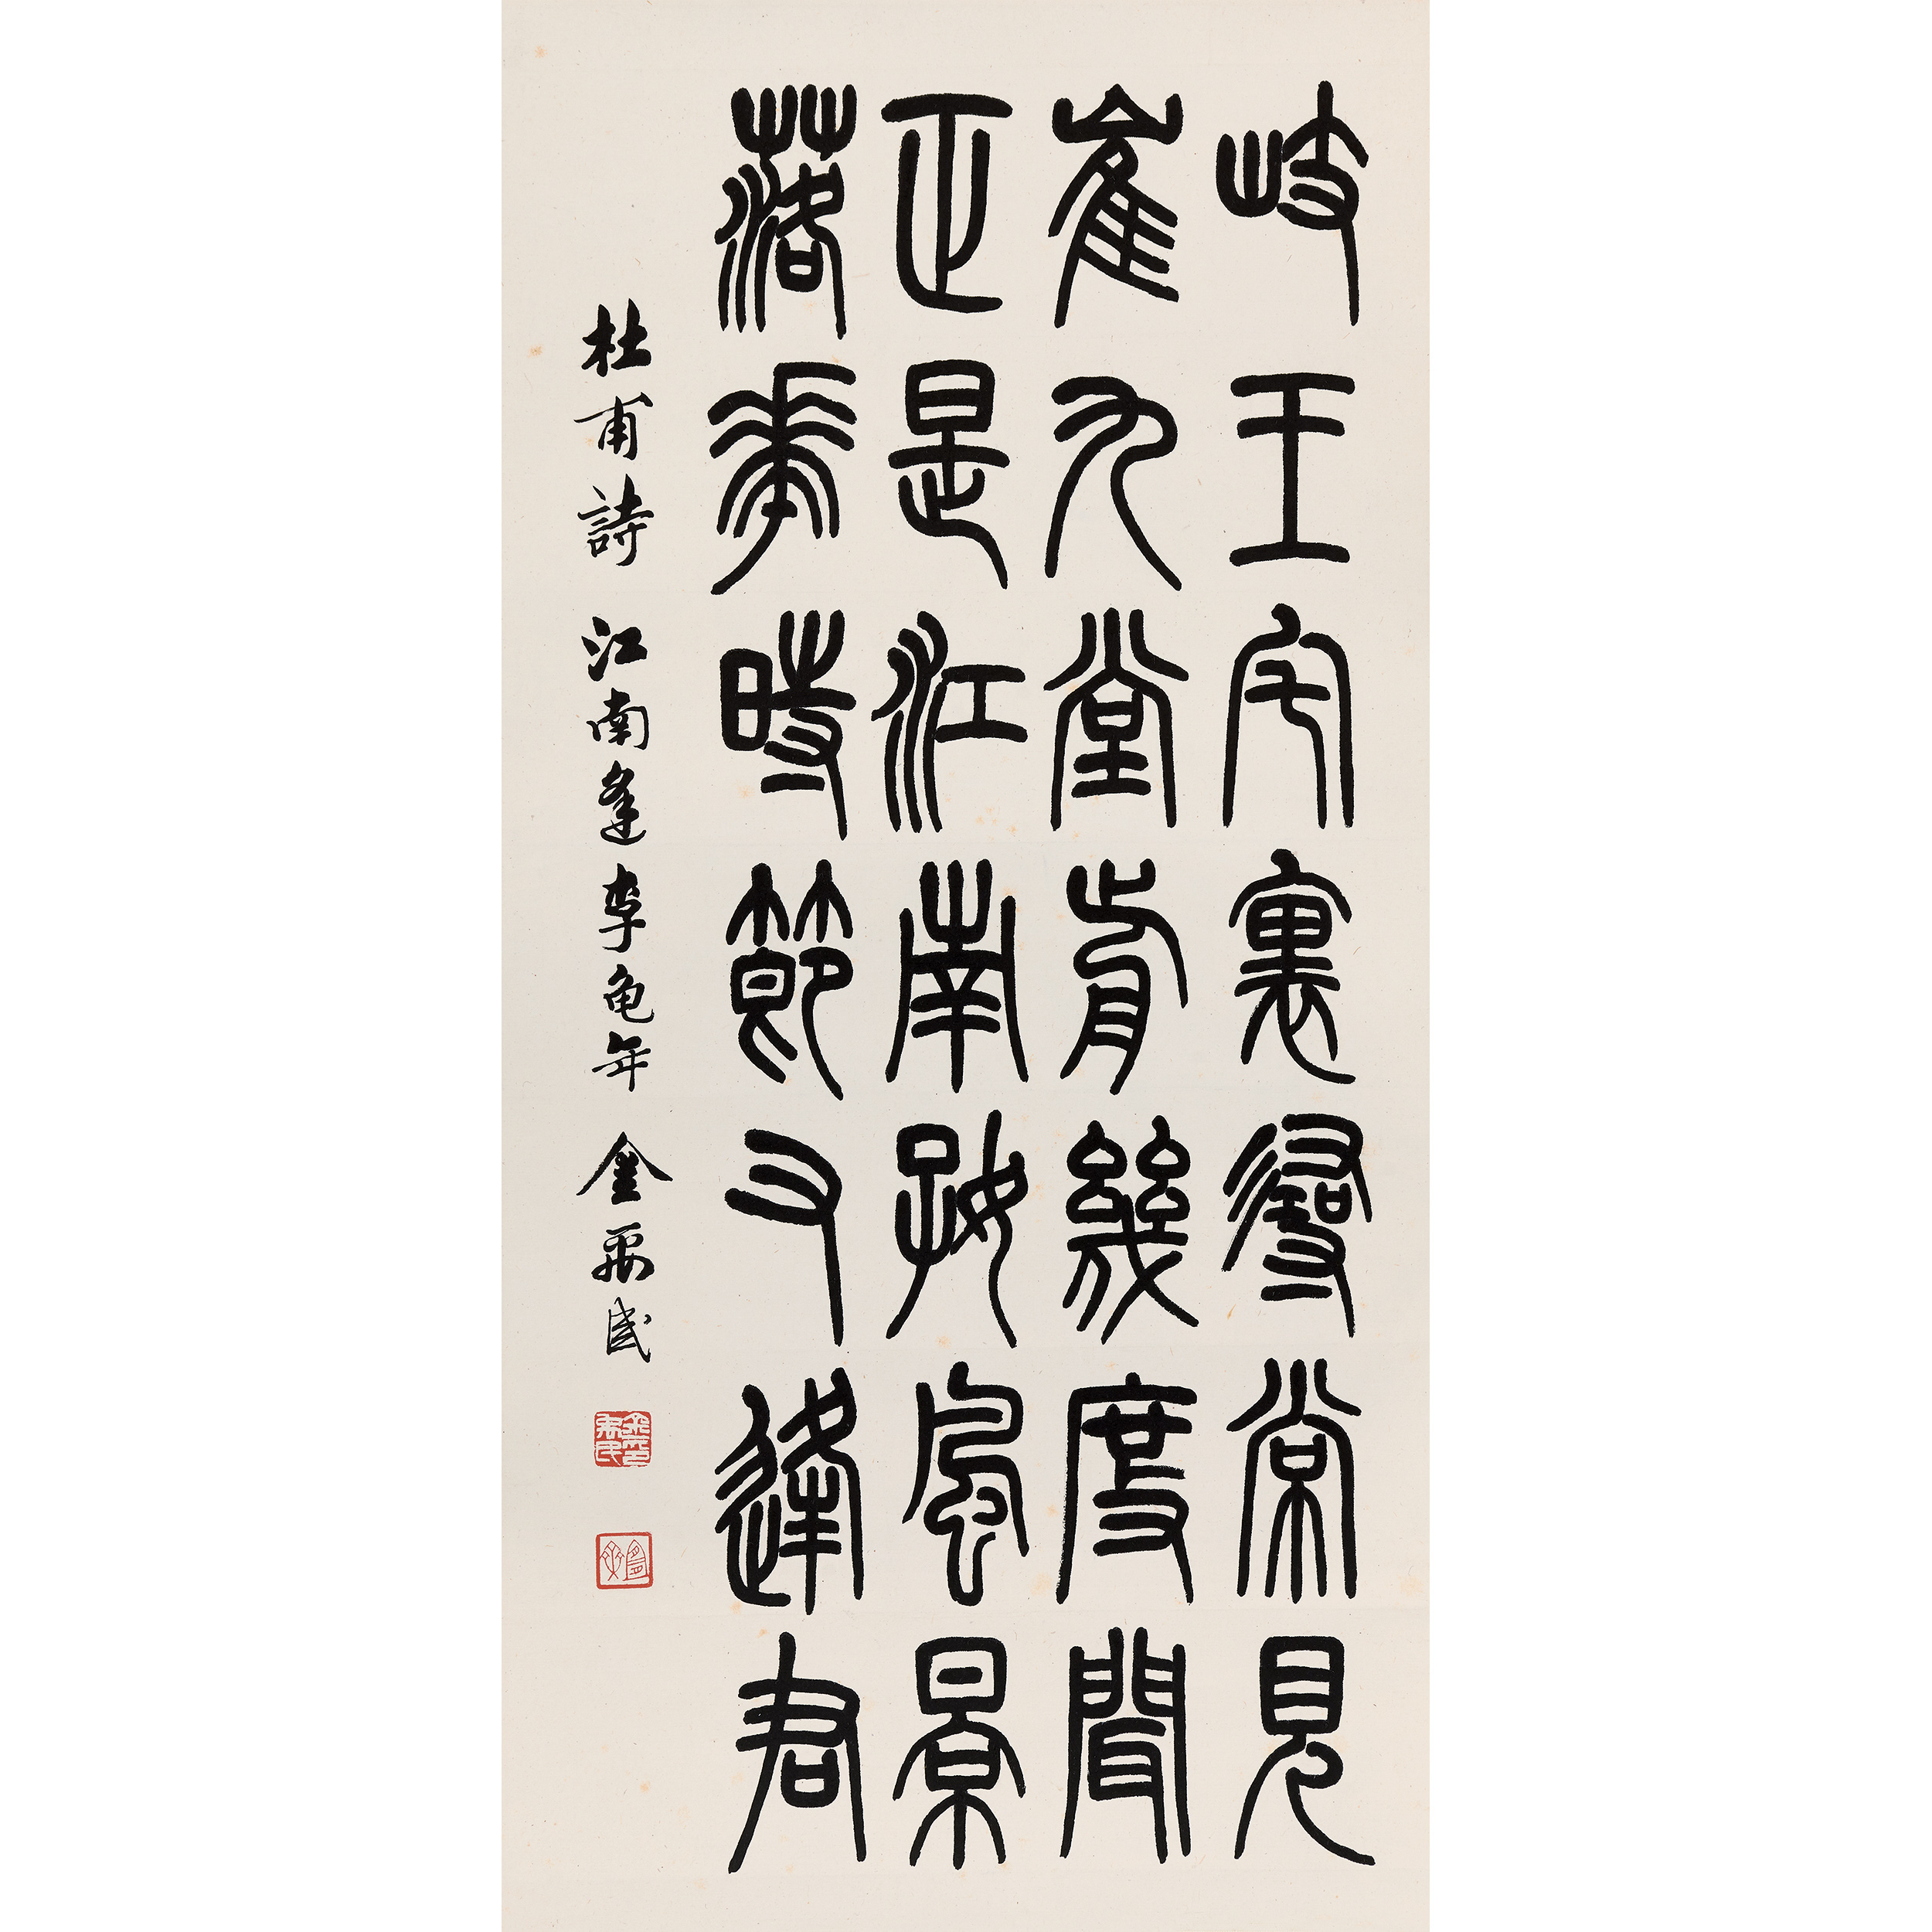 岐王宅裏尋常見
崔九堂前幾度聞
正是江南好風景
落華時節又逢君
杜甫詩 江南逢李亀年 金禹民
金禹民印